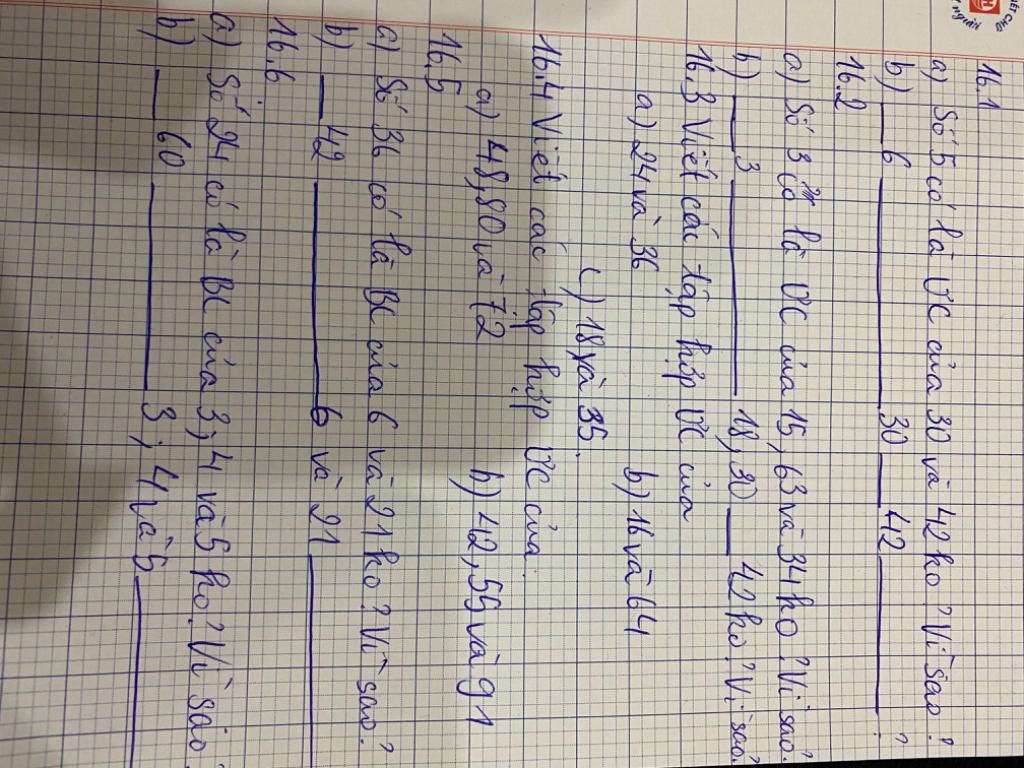 16.1
a) Số 5 có là ƯC của 30 và 42 ko? Vì sao?
b) __ 6 ____________ 30 __ 42 ________?
16.2
a) Số 3 có là ƯC của 15, 63 và 34 ko? Vì sao?
b) __ 3 ____________ 18, 30 __ 42 ko? Vì sao?
16.3 Viết các tập hợp ƯC của
a) 24 và 36 b) 16 và 64
c) 18 và 35.
16.4 Viết các tập hợp ƯC của:
a) 48, 80 và 72 b) 42, 55 và 91
16.5
a) Số 36 có là BC của 6 và 21 ko? Vì sao?
b) __ 42 ____________ 6 và 21 ________
16.6
a) Số 24 có là BC của 3; 4 và 5 ko? Vì sao?
b) __ 60 ____________ 3; 4 và 5 ________